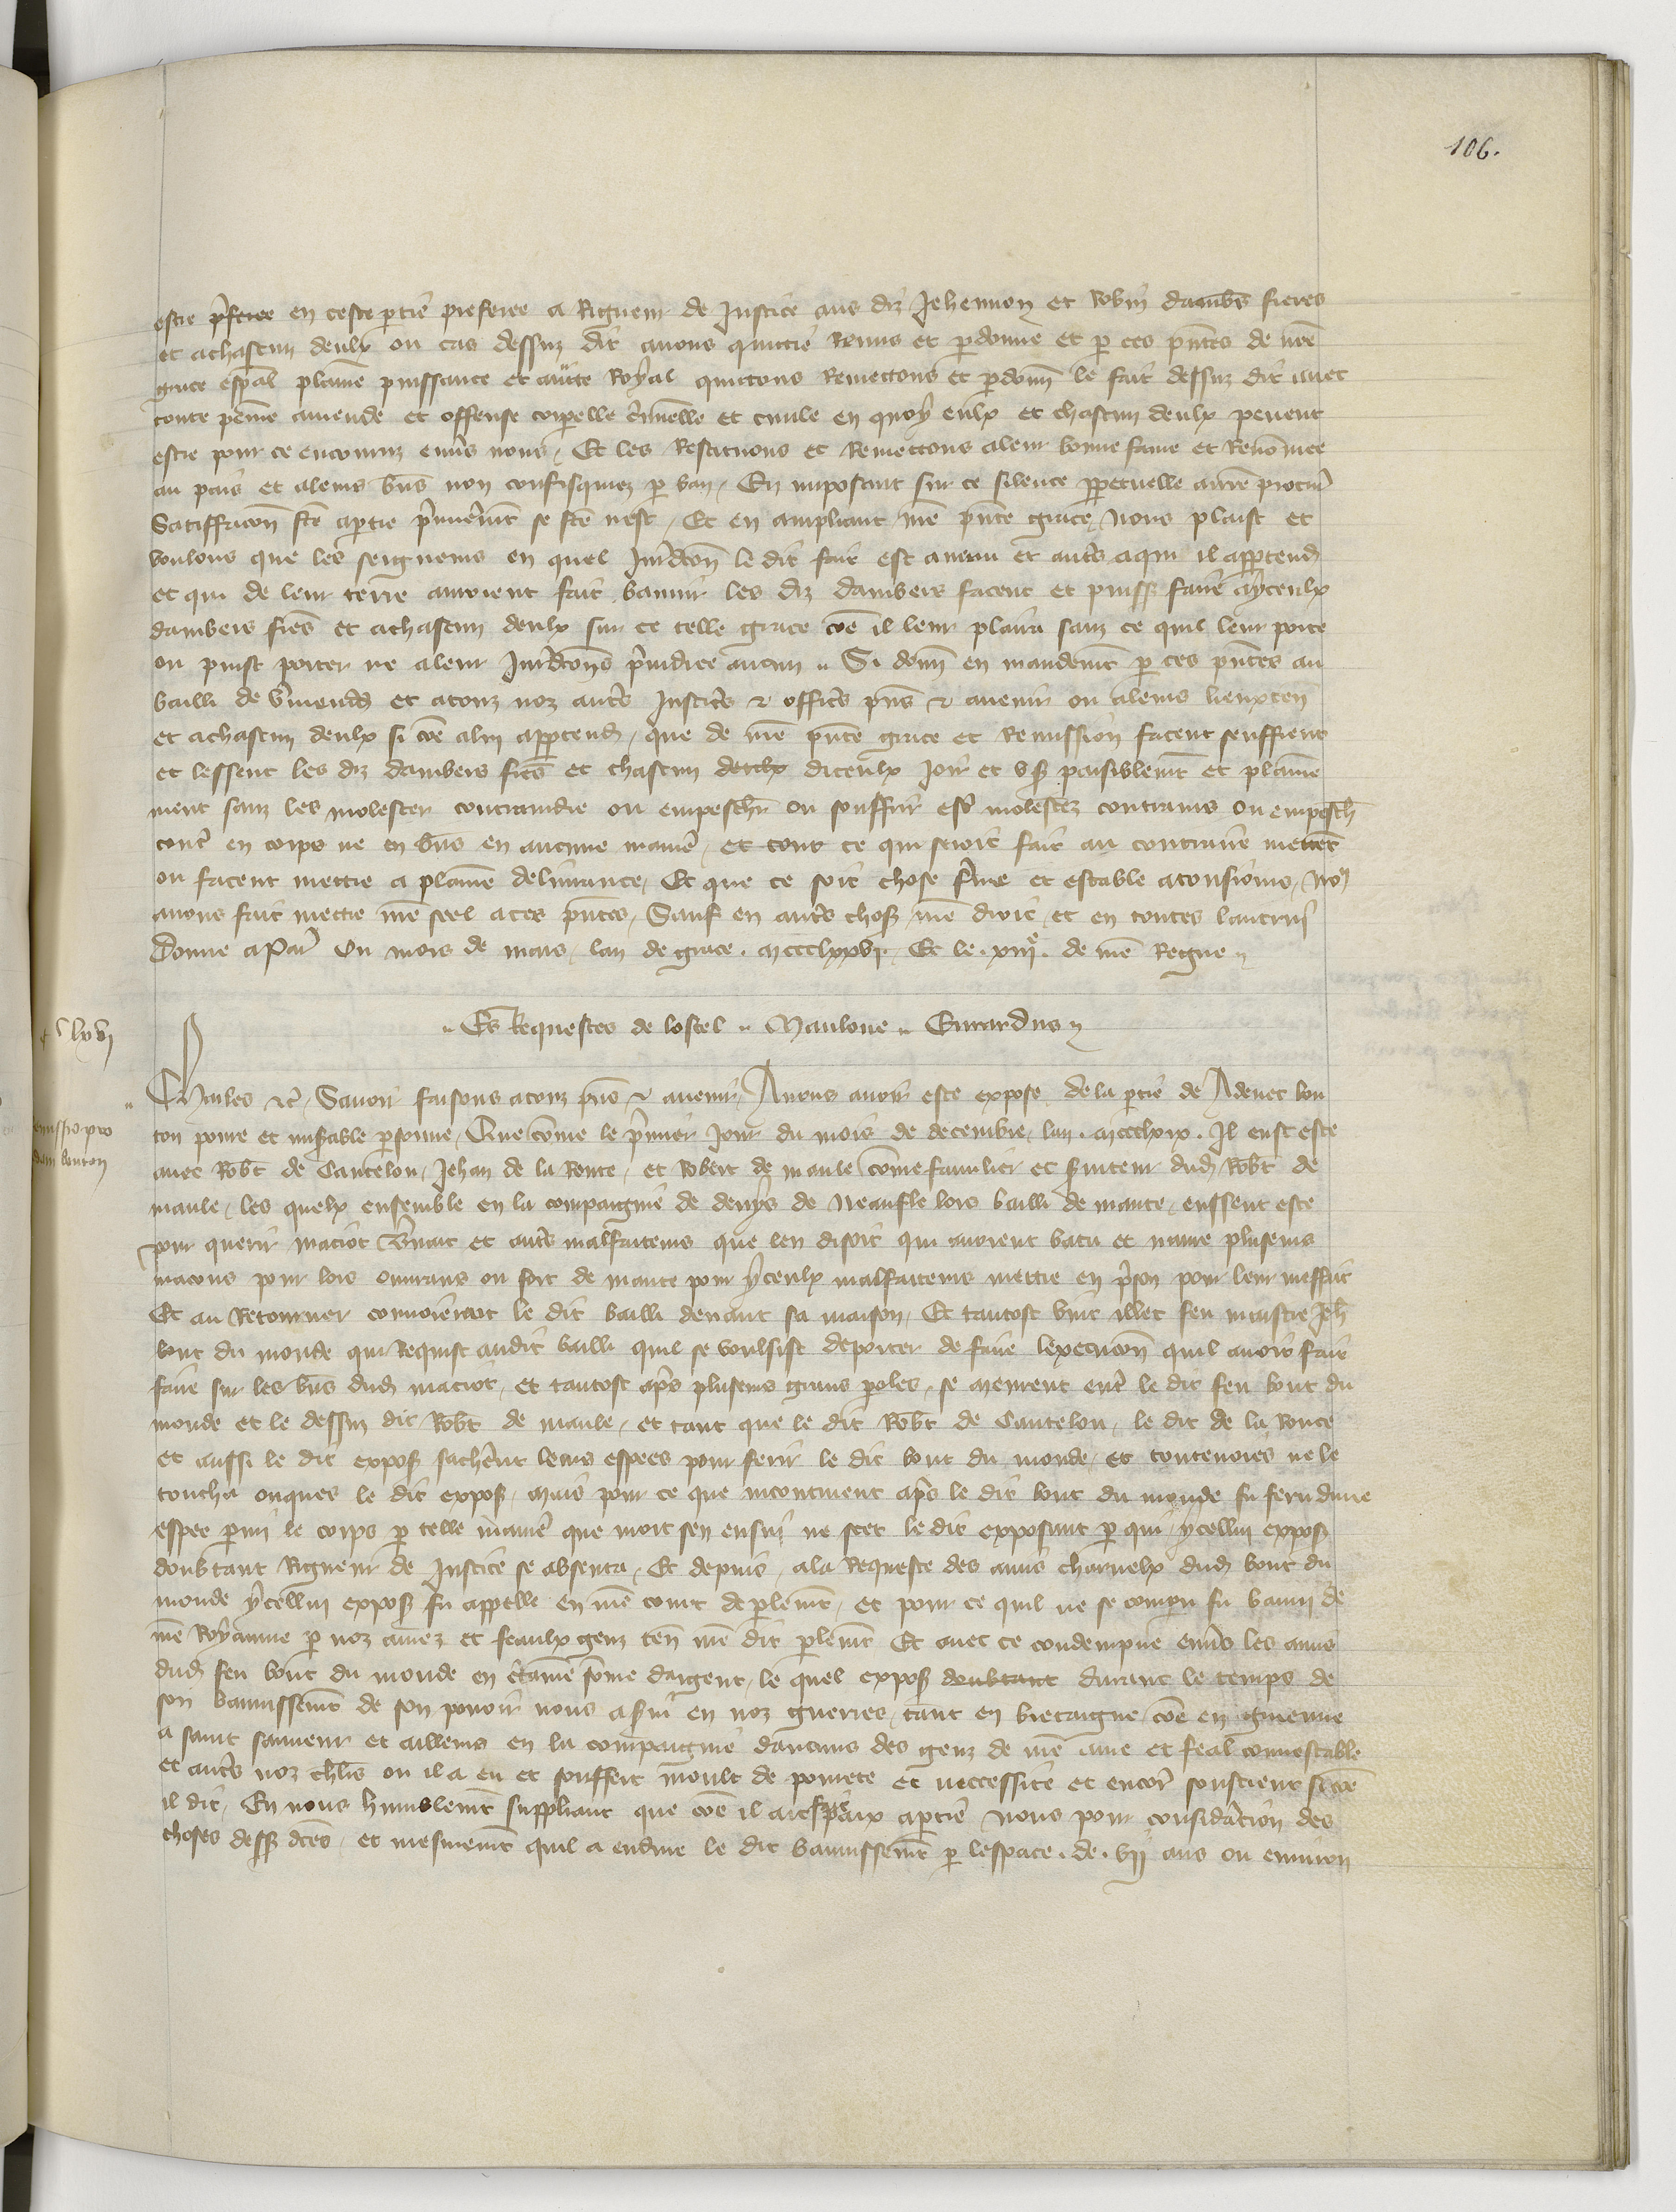 106.
estre p̃feree en ceste ptie preferee a Rigueur de Justice aus diz Jehennon et Robin dambes freres
et achascun deulx ou cas dessus dit auons quittie Remis et pdonne et p ces pñtes de nr̃e
grace esp̃al plaine puissance et aucte Royal quittons Remettons et pdonn̄ le fait dessus dit auec
toute peine amende et offense corpelle c̃minelle et ciuile en quoy eulx et chascun deulx peuent
estre pour ce encouruz enũs nous / Et les Restituons et Remettons aleur bonne fame et Renōmee
au pais et aleurs biẽs non confisquiez p ban / En imposant sur ce silence ppetuelle anr̃e procur̃
Satiffacōn fte aptie p̃mierem̃t se fte nest / Et en ampliant nr̃e pñte grace / Nous plaist et
voulons que les seigneurs en quel Jur̃dcōn le dit fait est auenu et autr̃s aqui il apptend̃
et qui de leur terre auroient fait bannir les diz dambers facent et puiss̃ faire ayceulx
dambers freres et achascun deulx sur ce telle grace cōe il leur plaira sanz ce quil leur porte
ou puist porter ne aleur Jur̃dcōns p̃iudice aucun // Si donn̄ en mandem̃t p ces pñtes au
bailli de v̄mend̃ et atouz noz autr̃s Justic̃s & offic̃s pñs & auenir ou aleurs lieuxten̄
et achascun deulx si cōe alui apptend̃ / que de nr̃e pñte grace et Remission facent seuffrent
et lessent les diz dambers freres et chascun deulx diceulx Joir et vs̃ paisiblem̃t et plaine
ment sanz les molester contraindre ou empeschr̃ ou souffrir estr̃ molestez contrains ou empesch̃
contr̃ en corps ne en biẽs en aucune manier̃ / et tout ce qui seroit fait au contraire mettent
ou facent mettre a plaine deliurance / Et que ce soit chose f̃me et estable atousiours / No9
auons fait mettre nr̃e seel a ces pñtes / Sauf en autr̃s choses nr̃e droit / et en toutes lautrui
Donne a Par̃ Ou mois de mars / lan de grace . mccclxxvj . Et le . xiiĩe . de nr̃e Regne //
lxvj
// Es Requestes de lostel // Maulone // Euvrardus //
Charles &c̃ / Sauoir faisons atouz pñs & auenir / Anous auoir este expose de la ptie de Adenet bou
emissio pro
dam bouton
ton poure et mis̃able psonne / Que cōme le p̃mier Jour du mois de decembre / lan . mccclxix . Il eust este
auec Rob̃t de Cantelou / Jehan de la Ronce / et Robert de maule cōme familier et s̃uiteur dud̃ Rob̃t de
maule / les quelx ensemble en la compaignie de denys de Neaufle lors bailli de mante / eussent este
pour querir maciot b̃nart et autr̃s malfaiteurs que len disoit qui auoient batu et naure pluseurs
macons pour lors ouurans ou fort de mante pour yceulx malfaiteurs mettre en p̃son pour leur meffait
Et au Retourner conuoierent le dit bailli deuant sa maison / Et tantost vint illec feu maistre Jeh̃
bout du monde qui Requist audit bailli quil se voulsist deporter de faire lexecucōn quil auoit fait
faire sur les biẽs dud̃ maciot / et tantost apr̃s pluseurs grans poles / se meurent entr̃ le dit feu bout du
monde et le dessus dit Rob̃t de maule / et tant que le dit Rob̃t de Cantelou / le dit de la Ronce
et aussi le dit expos̃ sacher̃nt leurs espees pour ferir le dit bout du monde / et touteuoies ne le
toucha onques le dit expos̃ / Mais pour ce que incontinent apr̃s le dit bout du monde fu feru dune
espee pmi le corps p telle manier̃ que mort sen ensui ne scet le dit exposant p qui / ycellui expos̃
doubtant Rigueur de Justice se absenta / Et depuis / ala Requeste des amis charnelx dud̃ bout du
monde ycellui expos̃ fu appelle en nr̃e court de plem̃t / et pour ce quil ne se compu fu banni de
nr̃e Royaume p noz amez et feaulx genz ten̄ nr̃e dit plem̃t Et auec ce condempne enũs les amis
dud̃ feu bout du monde en c̃taine sōme dargent / le quel expos̃ doubtant durant le temps de
son bannissem̃t de son pouoir nous a s̃ui en noz guerres / tant en bretaigne cōe en guienne
a saint sauueur et ailleurs en la compaignie daucuns des genz de nr̃e ame et feal connestable
et autr̃s noz ch̃l̃rs ou il a eu et souffert moult de pourete et neccessite et encor̃ soustient si cōe
il dit / En nous humblem̃t suppliant que cōe il ait fte paix aptie Nous pour consid̃acion des
choses dess̃ dc̃es / et mesmem̃t quil a endure le dit bannissem̃t p lespace . de . vij ans ou enuiron